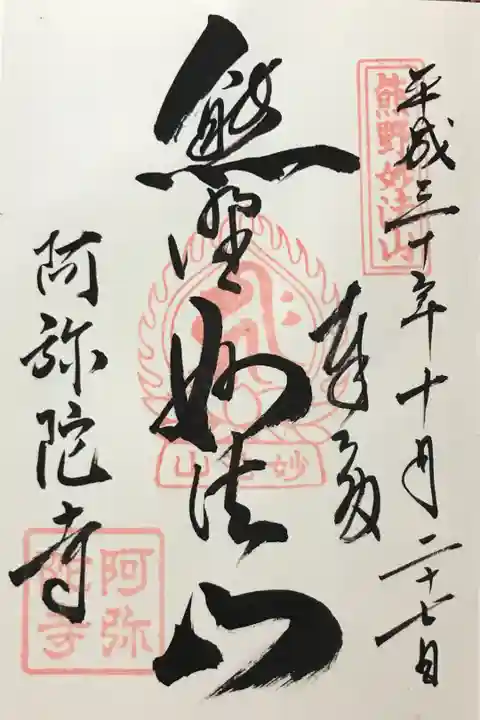 平成三十年十月二十七日
奉拝
熊野妙法山
阿弥陀寺
熊野妙法山
妙法山
阿弥陀寺